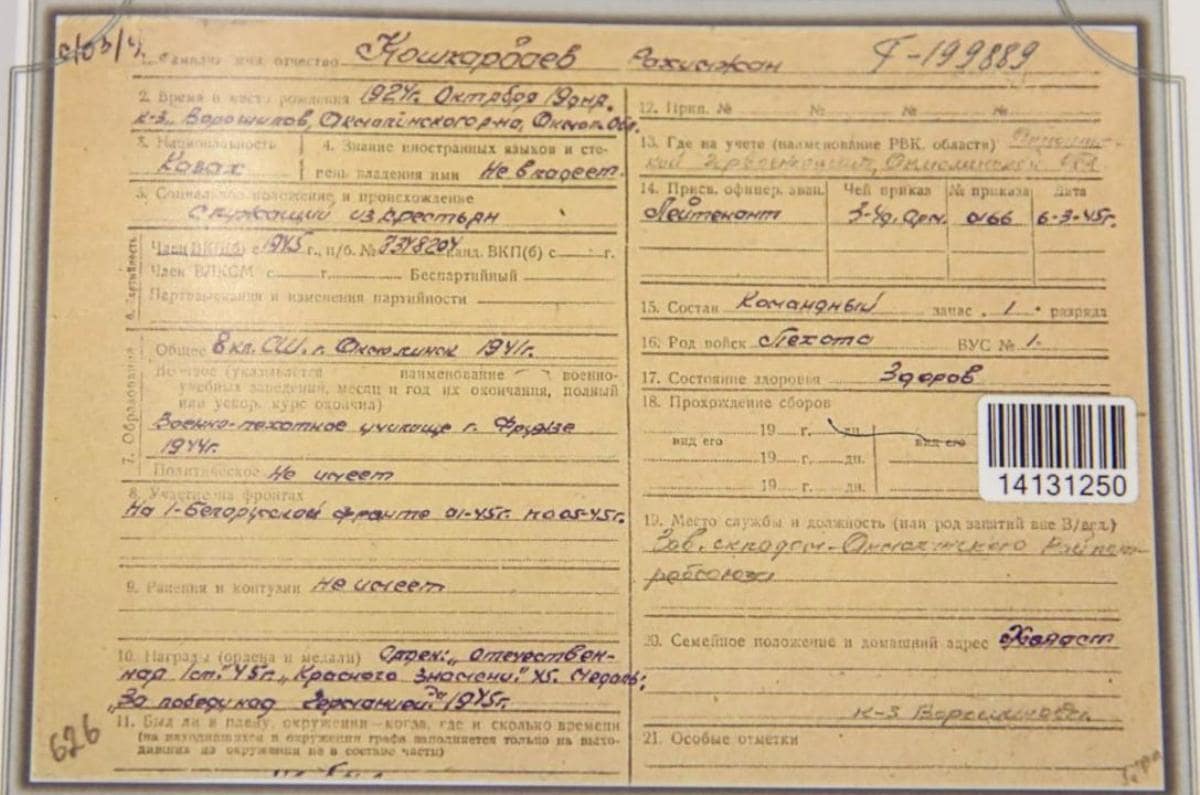 1. Фамилия имя отчество Кошкарбаев Рахимжан
Г-199889
2. Время и место рождения 1924г. Октября 19 дня.
к-з „Ворошилов, Акмолинского р-на, Акмол. Обл.
3. Национальность Казах
4. Знание иностранных языков и сте-
пень владения ими Не владеет.
5. Социальное положение и происхождение
Служащий из крестьян
6. Партийность
Член ВКП(б) с 1945 г., п/б. № 7348204 канд. ВКП(б) с г.
Член ВЛКСМ с г. Беспартийный
Партвзыскания и изменения партийности
7. Образование
Общее 8 кл. СШ. г. Акмолинск 1941г.
Военное (указывается наименование военно-
учебных заведений, месяц и год их окончания, полный
или ускор. курс окончил)
Военно-пехотное училище г. Фрунзе
1944г.
Политическое Не имеет
8. Участие на фронтах
На 1-Белорусской фронте 01-45г. по 05-45г.
9. Ранения и контузии Не имеет
10. Награды (ордена и медали) Орден: „Отечествен-
ная 1 ст." 45г. „Красного Знамени." 45. Медаль:
„За победу над Германией" 1945г.
11. Был ли в плену, окружении—когда, где и сколько времени
(на находившихся в окружении графа заполняется только на выхо-
дивших из окружения не в составе части)
626
12. Прип. № № № №
13. Где на учете (наименование РВК, области)
14. Присв. офицер. зван. Чей приказ № приказа Дата
Лейтенант 3-Уд. Арм. 0166 6-3-45г.
15. Состав Командный запас 1 разряда
16. Род войск Пехота ВУС № 1.
17. Состояние здоровья Здоров
18. Прохождение сборов
19 г. дн.
вид его вид его
19 г. дн.
19 г. дн.
14131250
19. Место службы и должность (или род занятий вне В/вед.)
Зав. складом Акмолинского Райпот-
ребсоюза
20. Семейное положение и домашний адрес Холост
к-з Ворошилова
21. Особые отметки